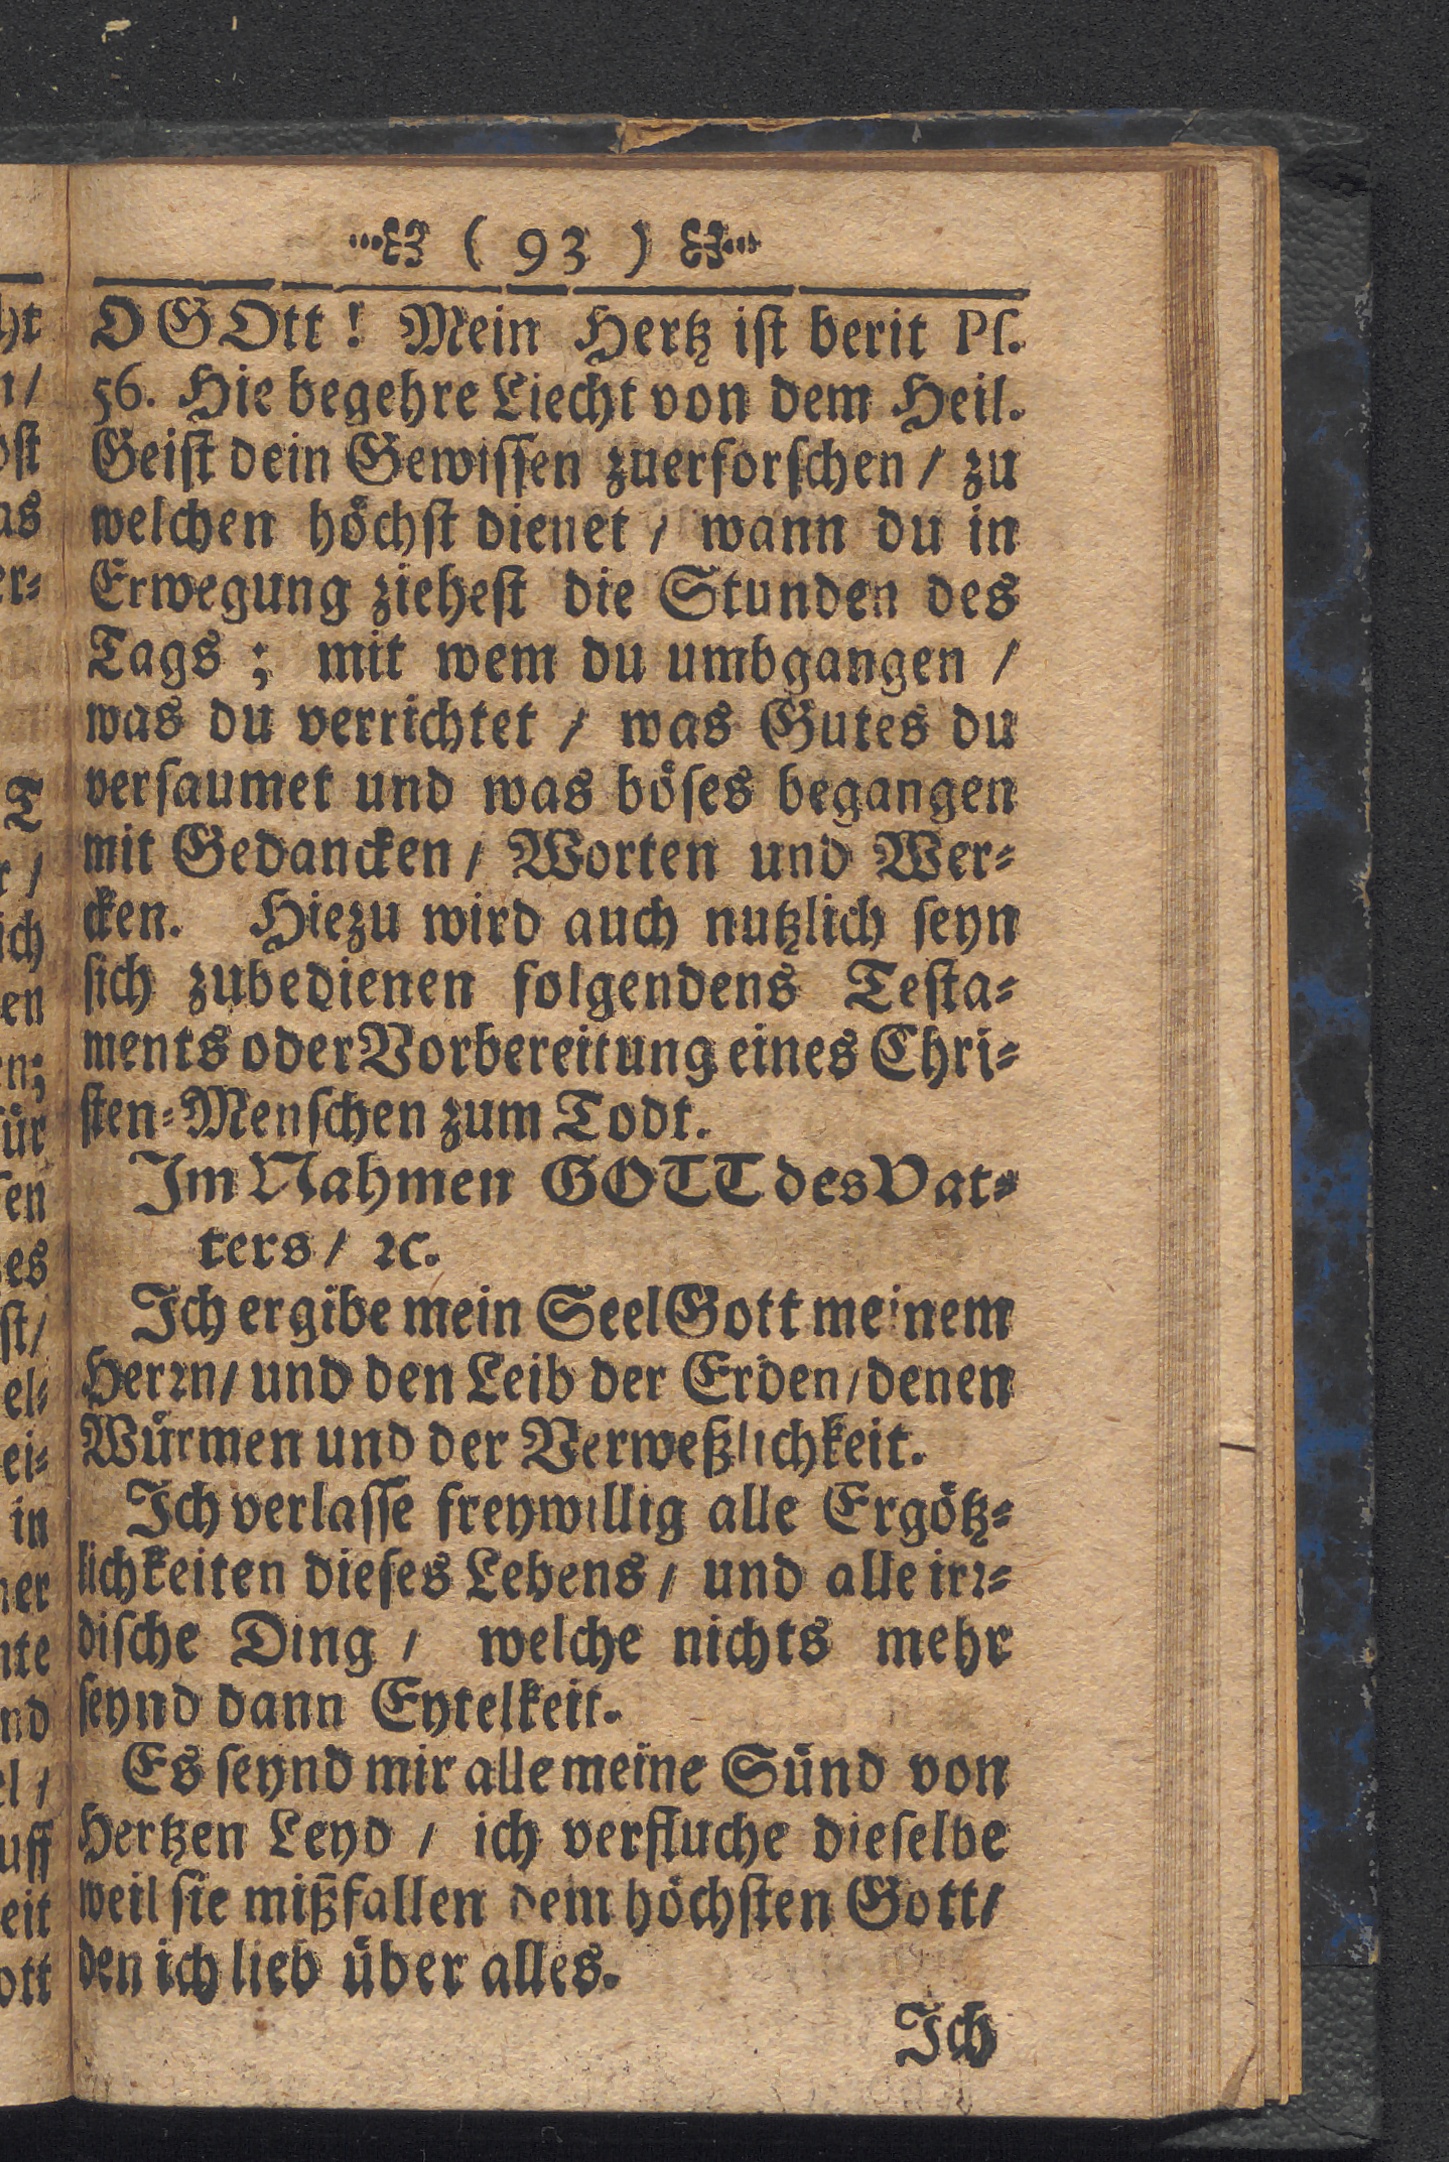 ( 93 )
O GOtt! Mein Hertz ist berit Ps.
56. Hie begehre Liecht von dem Heil.
Geist dein Gewissen zuerforschen / zu
welchen höchst dienet / wann du in
Erwegung ziehest die Stunden des
Tags ; mit wem du umbgangen /
was du verrichtet / was Gutes du
versaumet und was böses begangen
mit Gedancken / Worten und Wer-
cken. Hiezu wird auch nutzlich seyn
sich zubedienen folgendens Testa-
ments oder Vorbereitung eines Chri-
sten-Menschen zum Todt.
Im Nahmen GOTT des Vat-
ters / ꝛc.
Ich ergibe mein Seel Gott meinem
Herꝛn / und den Leib der Erden / denen
Würmen und der Verweßlichkeit.
Ich verlasse freywillig alle Ergötz-
lichkeiten dieses Lebens / und alle irꝛ-
dische Ding / welche nichts mehr
seynd dann Eytelkeit.
Es seynd mir alle meine Sünd von
Hertzen Leyd / ich verfluche dieselbe
weil sie mißfallen dem höchsten Gott /
den ich lieb über alles.
Ich